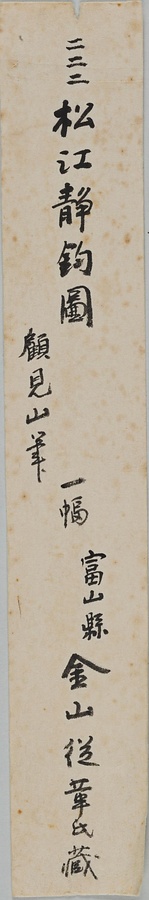 二二二
松江静釣圖
顧見山筆
一幅
富山縣
金山從革氏藏